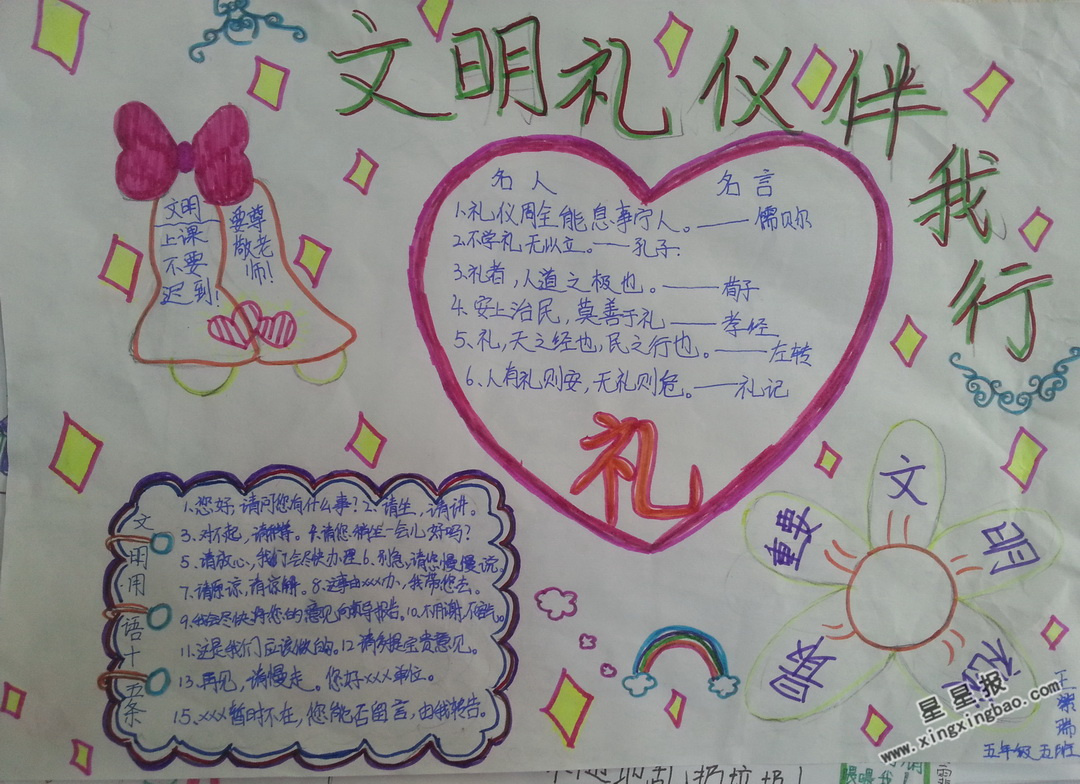 文明礼仪伴我行
文明
上课
不要
迟到!
要尊
敬老
师!
名人 名言
1.礼仪周全能息事宁人。——儒贝尔
2.不学礼无以立。——孔子
3.礼者,人道之极也。——荀子
4.安上治民,莫善于礼——孝经
5、礼,天之经也,民之行也。——左转
6、人有礼则安,无礼则危。——礼记
礼
文明用语十五条
1.您好,请问您有什么事?2.请坐,请讲。
3.对不起,请稍等。4.请您稍坐一会儿好吗?
5.请放心,我们会尽快办理6.别急,请您慢慢说。
7.请原谅,请谅解。8.这事由xxx办,我带您去。
9.我会尽快将您的意见向领导报告。10.不用谢,不客气。
11.这是我们应该做的。12请多提宝贵意见。
13.再见,请慢走。您好xxx单位。
15.xxx暂时不在,您能否留言,由我转告。
文
明
礼
最
重要
五年级五班
星星报
www.xingxingbao.com